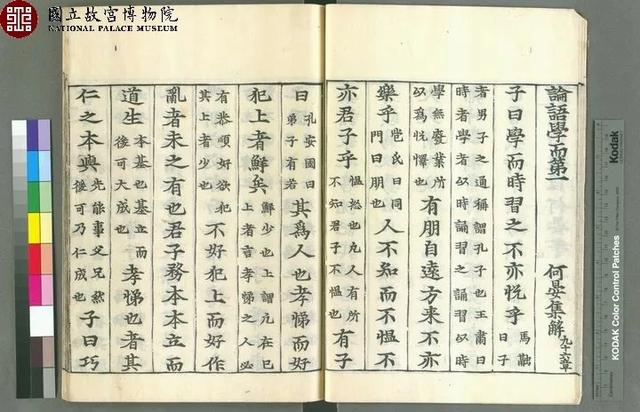 國立故宮博物院
NATIONAL PALACE MUSEUM
論語學而第一 何晏集解 凡十六章
子曰學而時習之不亦悅乎 馬融曰子
者男子之通稱謂孔子也王肅曰時者學者以時誦習之誦習以時
學無廢業所以爲悅懌也 有朋自遠方來不亦
樂乎 苞氏曰同門曰朋也 人不知而不慍不
亦君子乎 慍怒也凡人有所不知君子不慍也 有子
曰 孔安國曰弟子有若 其爲人也孝悌而好
犯上者鮮矣 鮮少也上謂凡在己上者言孝悌之人必
有恭順好欲犯其上者少也 不好犯上而好作
亂者未之有也君子務本本立而
道生 本基也基立而後可大成也 孝悌也者其
仁之本與 先能事父兄然後可乃仁成也 子曰巧
Kodak
KODAK Color Control Patches